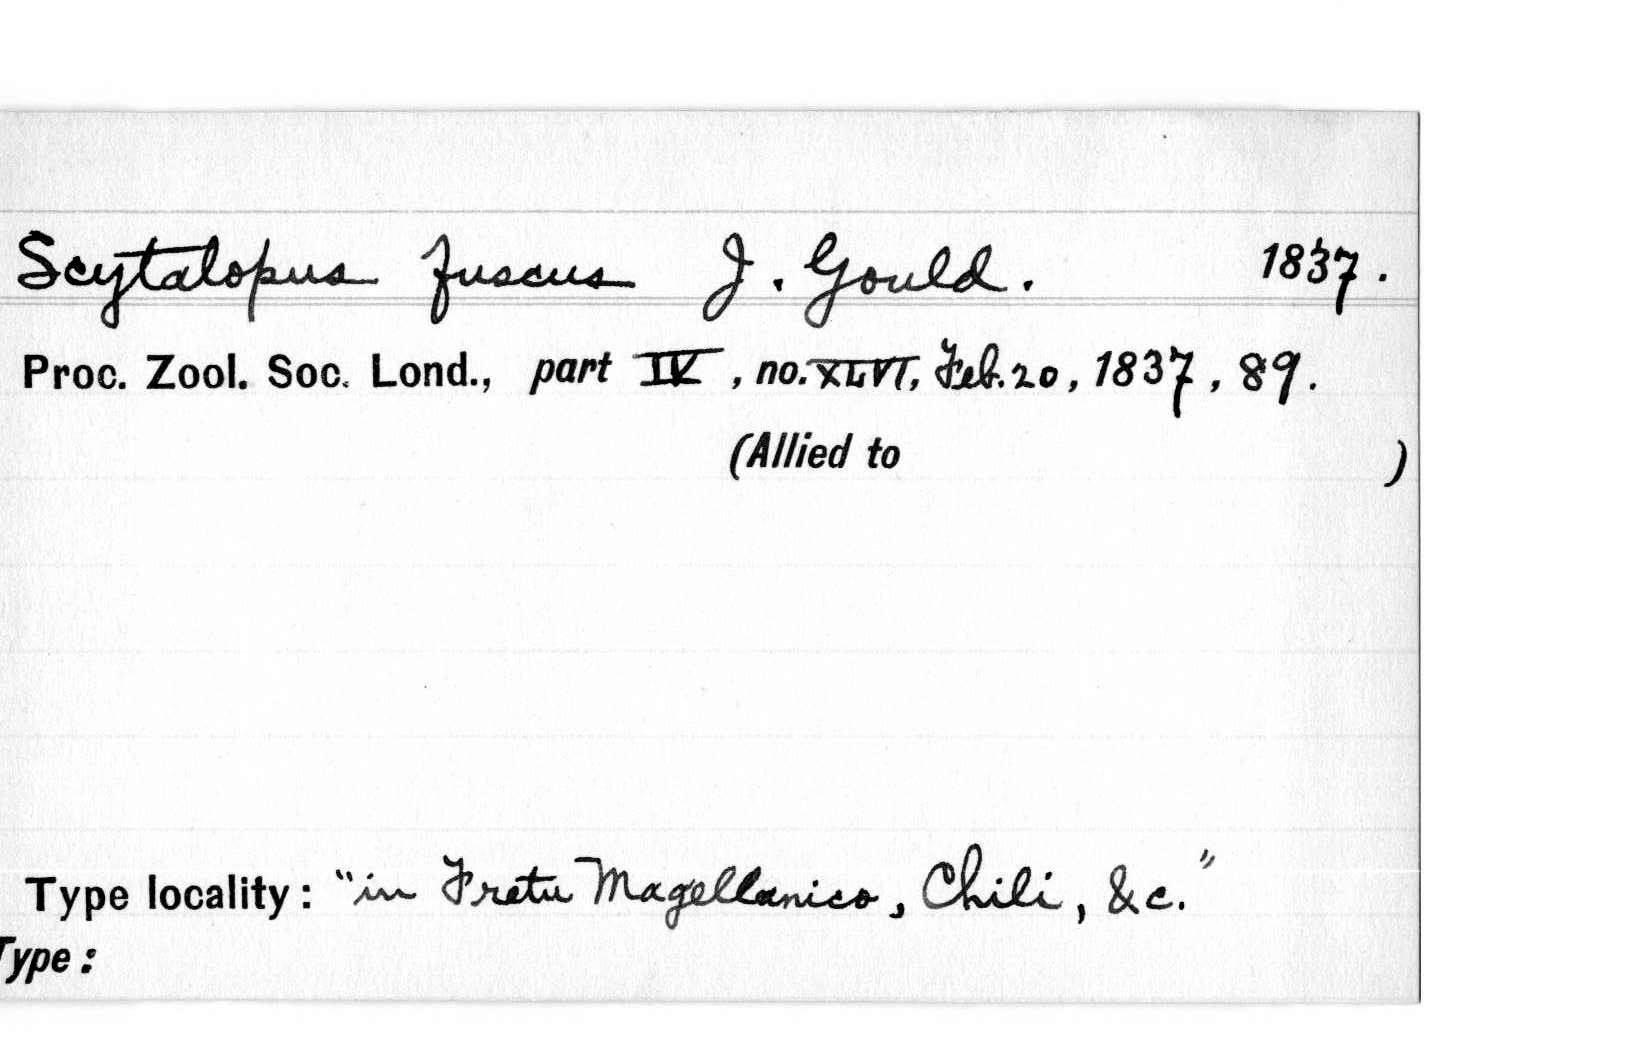 Scytalopus fuscus J. Gould. 1837.
Proc. Zool. Soc. Lond., part IV, no. XLVI, Feb. 20, 1837, 89.
(Allied to )
Type locality: "in Fretu Magellanico, Chili, &c."
Type: